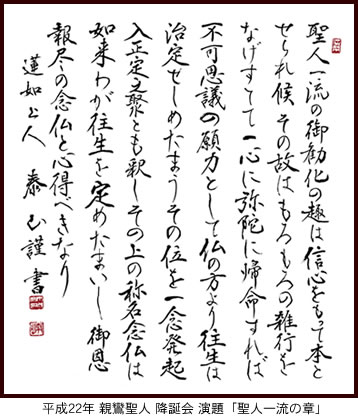 聖人一流の御勧化の趣は信心をもって本と
せられ候その故はもろもろの雑行を
なげすてて一心に弥陀に帰命すれば
不可思議の願力として仏の方より往生は
治定せしめたまうその位を一念発起
入正定之聚とも釈しその上の称名念仏は
如来わが往生を定めたまいし御恩
報尽の念仏と心得べきなり
蓮如上人 泰 謹書
平成22年 親鸞聖人 降誕会 演題「聖人一流の章」